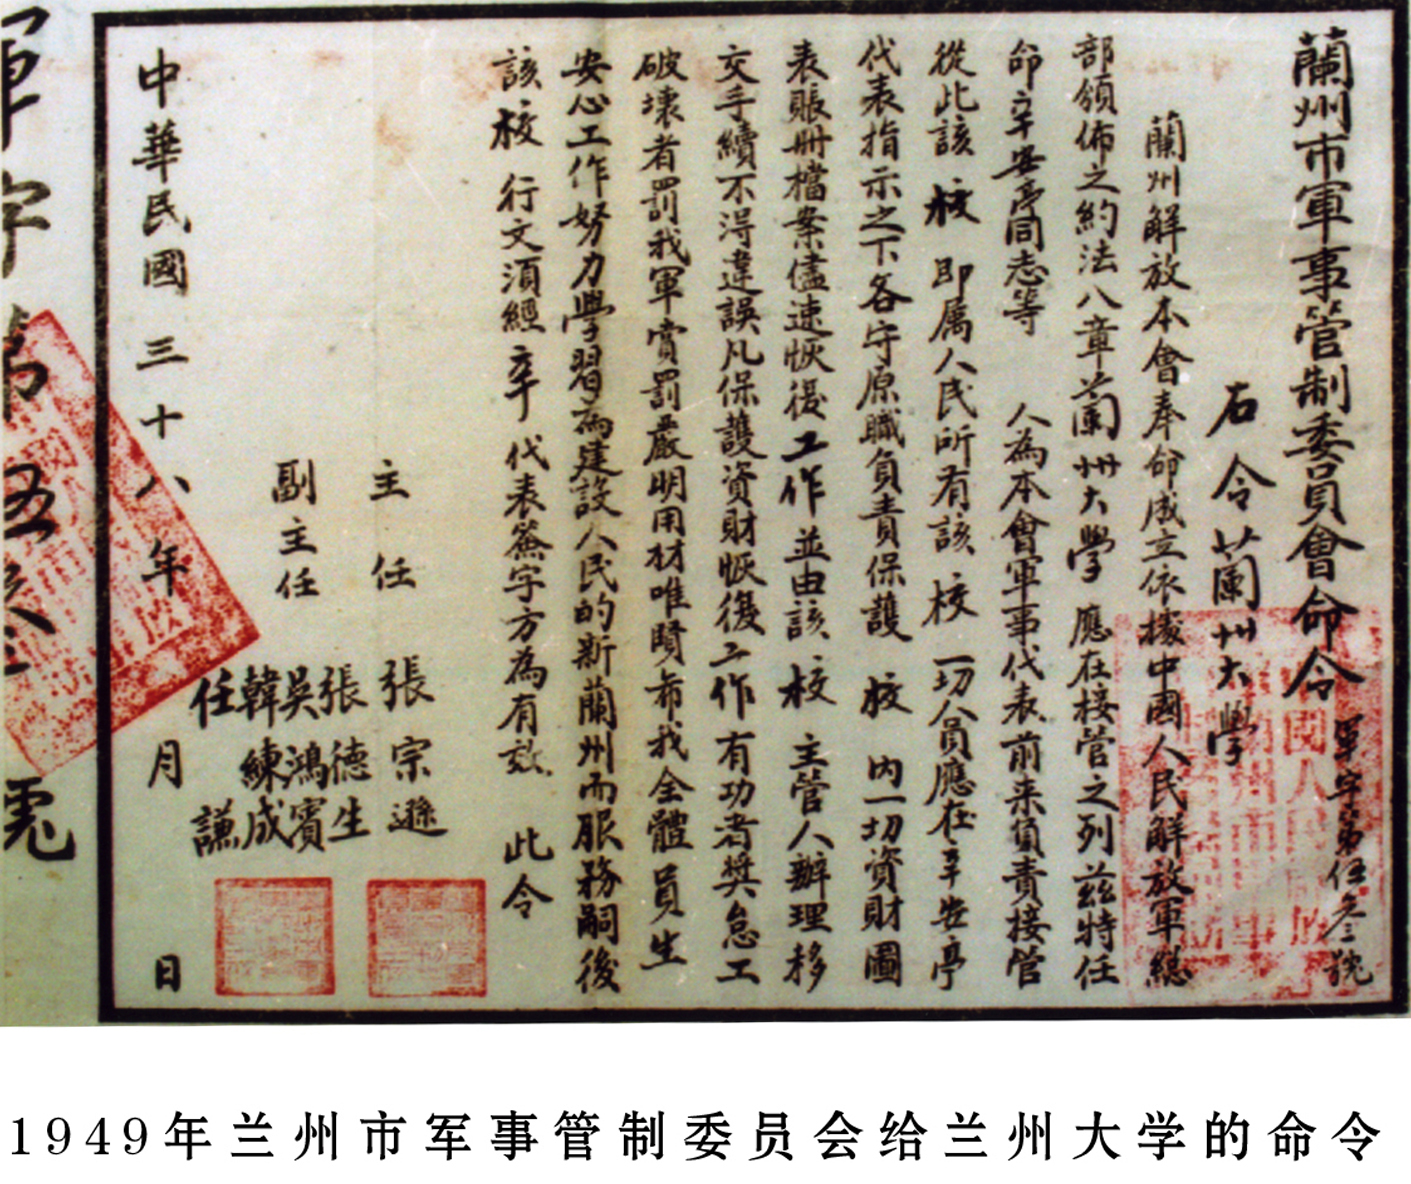 蘭州市軍事管制委員會命令
軍字第伍叁號
右令蘭州大學
蘭州解放本會奉命成立依據中國人民解放軍總
部頒佈之約法八章蘭州大學應在接管之列茲特任
命辛安亭同志等 人為本會軍事代表前来負責接管
從此該校即属人民所有該校一切人員應在辛安亭
代表指示之下各守原職負責保護校内一切資財圖
表賬册檔案儘速恢復工作並由該校主管人辦理移
交手續不淂違誤凡保護資財恢復工作有功者獎怠工
破壞者罰我軍賞罰嚴明用材唯賢希我全體員生
安心工作努力學習為建設人民的新蘭州而服務嗣後
該校行文須經辛代表簽字方為有效 此令
主任 張宗遜
副主任 張德生
吳鴻賓
韓練成
任謙
中華民國三十八年 月 日
軍字第伍叁號
1949年兰州市军事管制委员会给兰州大学的命令